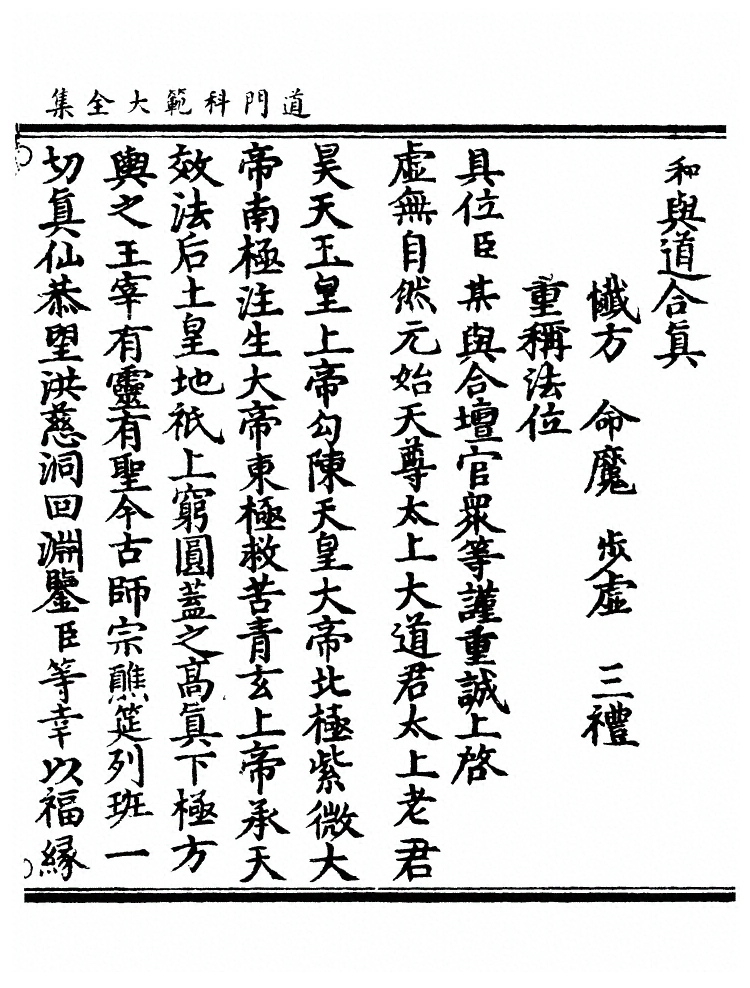 道門科範大全集
和與道合眞
懺方 命魔 步虛 三禮
重稱法位
具位臣某與合壇官衆等謹重誠上啓
虛無自然元始天尊太上大道君太上老君
昊天玉皇上帝勾陳天皇大帝北極紫微大
帝南極注生大帝東極救苦青玄上帝承天
效法后土皇地祇上窮圓蓋之高眞下極方
輿之王宰有靈有聖今古師宗醮筵列班一
切眞仙恭望洪慈洞回淵鑒臣等幸以福緣